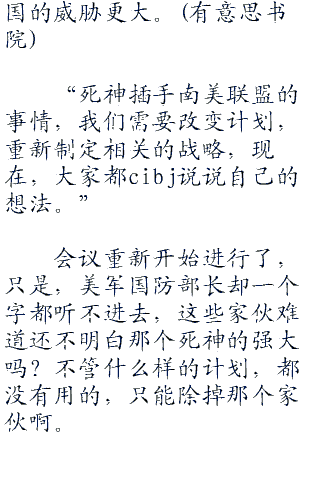 国的威胁更大。（有意思书
院）
“死神插手南美联盟的
事情，我们需要改变计划，
重新制定相关的战略，现
在，大家都cibj说说自己的
想法。”
会议重新开始进行了，
只是，美军国防部长却一个
字都听不进去，这些家伙难
道还不明白那个死神的强大
吗？不管什么样的计划，都
没有用的，只能除掉那个家
伙啊。